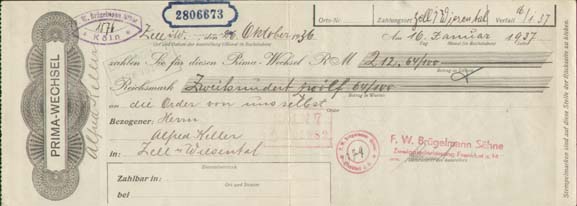 2806673
Orts-Nr. Zahlungsort Zell/Wiesental Verfall 16/1.37
F. W. Brügelmann Söhne
1871
Köln
Zell i/W. den 26 Oktober 1936
Am 16. Januar 1937
Ort und Datum der Ausstellung (Monat in Buchstaben)
Tag Monat in Buchstaben
zahlen Sie für diesen Prima-Wechsel RM 212.64/100
Betrag in Ziffern
Reichsmark Zweihundertzwölf 64/100
Betrag in Worten
an die Order von uns selbst
Order
Bezogener: Herrn
Alfred Keller
in: Zell-Wiesental
F. W. Brügelmann Söhne
Zweigniederlassung Frankfurt a. M.
Zahlbar in
Ort und Strasse
bei
PRIMA-WECHSEL
Alfred Keller
Stempelmarken sind auf diese Stelle der Rückseite zu kleben.